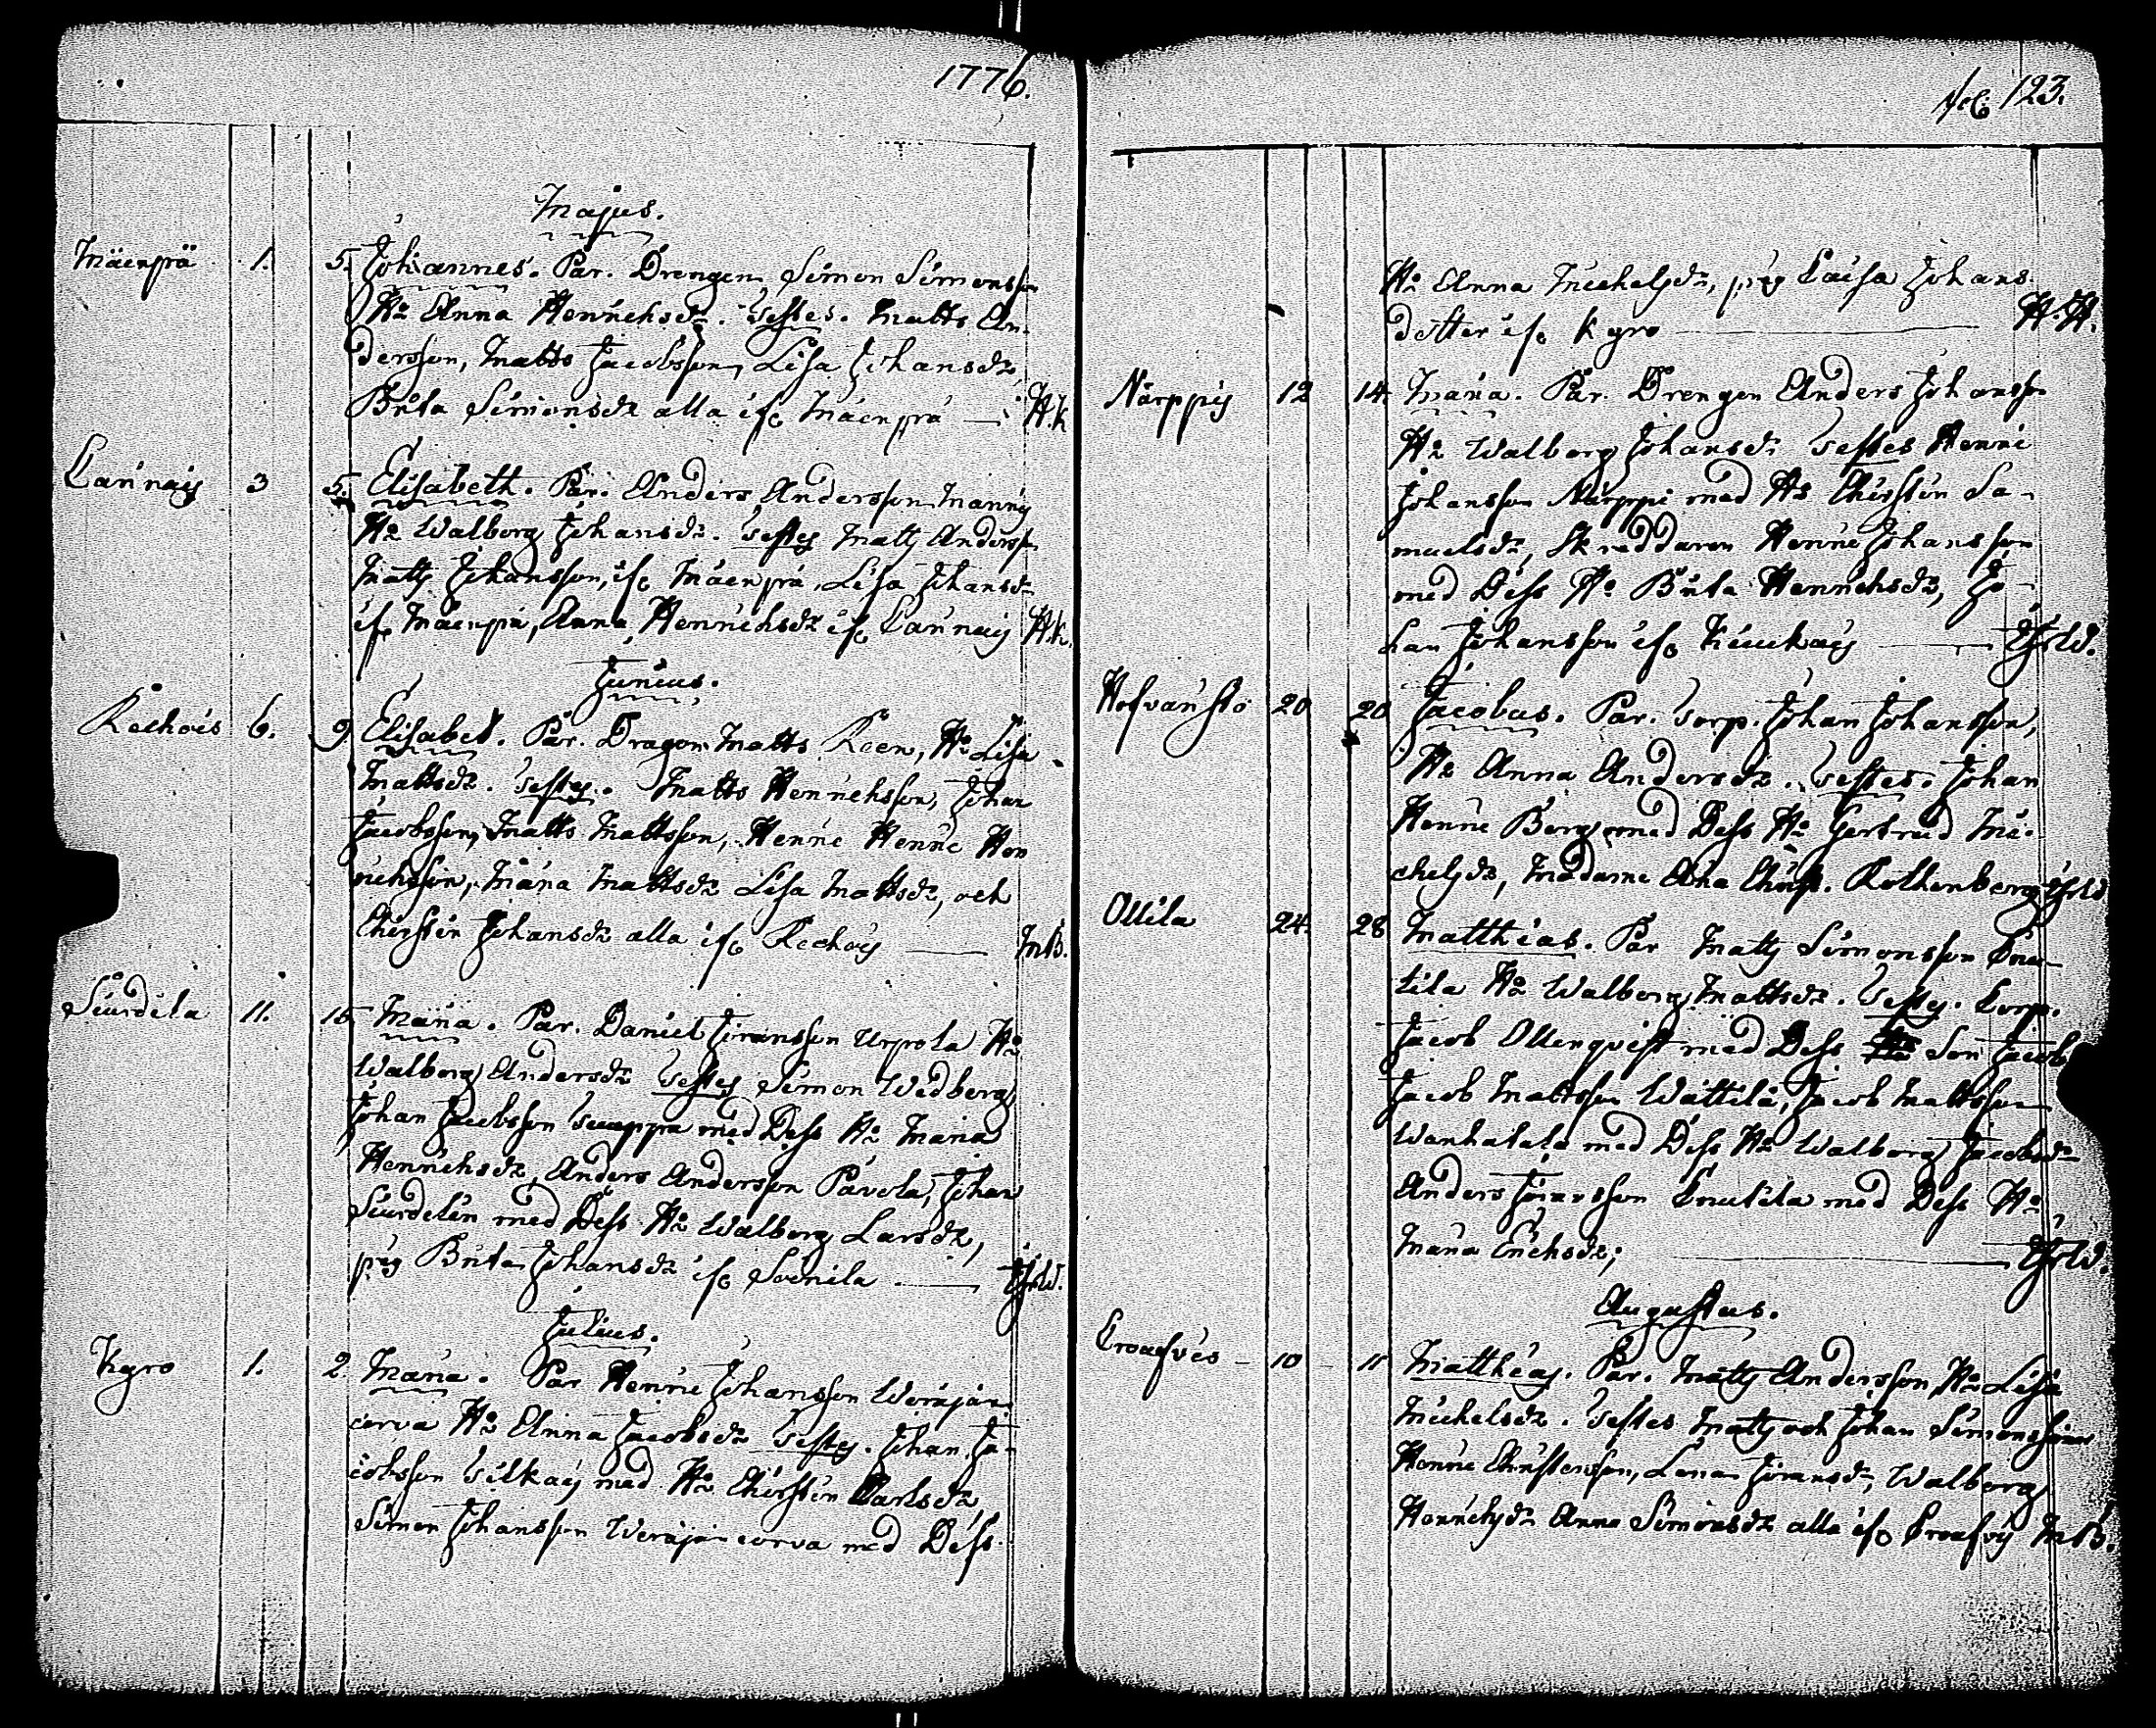 1776.
Majus.
Mäenpä 1. 5. Johannes. Par. Drengen Simon Simonsson
Hu Anna Henrichsdr. Testes. Matts An-
dersson, Matts Jacobsson, Lisa Johansdr
Brita Simonsdr alla ifr Mäenpä — H.k
Lannaig 3 5. Elisabeth. Par. Anders Andersson Nanny
Hu Walborg Johansdr. Testes Matts Andersson
Matts Johansson, ifr Mäenpä, Lisa Johansdr
ifr Mäenpä, Anna Henrichsdr ifr Lannaig H.k.
Junius.
Raihois 6. 9. Elisabet. Par. Dragon Matts Reen, Hu Lisa
Mattsdr. Testes. Matts Henrichsson, Johan
Jacobsson, Matts Mattsson, Henric Henric Hen
richsson, Maria Mattsdr Lisa Mattsdr, och
Chirstin Johansdr alla ifr — M.B.
Siurdila 11. 15 Maria. Par. Daniel Jöransson Urpola Hu
Walborg Andersdr Testes Simon Widberg,
Johan Jacobsson med Dess Hu Maria
Henrichsdr, Anders Andersson Pavola, Johan
Siurdelin med Dess Hu Walborg Larsdr,
pig Brita Johansdr ifr Soinila —
Julius.
Kyro 1. 2. Maria. Par Henric Johansson Weräjän
corva Hu Anna Jacobsdr Testes. Johan Ja-
cobsson Silkaig med Hu Chirstin Carlsdr,
Simon Johansson Weräjän corva med Dess
fol. 123.
Hu Anna Michelsdr, pig Caisa Johans
dotter ifr Kyro — H.H.
Närppig 12 14. Maria. Par. Drengen Anders Johansson
Hu Walborg Johansdr Testes Henric
Johansson Närppi med Hu Chirstin Sa-
muelsdr, Skreddaren Henric Johansson
med Dess Hu Brita Henrichsdr, Jo-
han Johansson ifr —
Hofvanstö 20 20 Jacobus. Par. Torp. Johan Johansson,
Hu Anna Andersdr. Testes. Johan
Henric Berg med Dess Hu Gertrud Mi-
chelsdr, Madame Ana Christ. Rothenberg
Ollila 24. 28 Matthias. Par Matts Simonsson Knu
tila Hu Walborg Mattsdr. Testes. Corp.
Jacob Ollenqvist med Dess Son Jacob
Jacob Mattsson Wättilä, Jacob Mattsson
Wanhatalo med Dess Hu Walborg Jacobsdr
Anders Jöransson Knutila med Dess Hu
Maria Erichsdr; —
Augustus.
Croafvis — 10 — 11 Matthias. Par. Matts Andersson, Hu Lisa
Michelsdr. Testes Matts och Johan Simonssöner
Henric Christersson, Lena Jöransdr, Walborg
Henrichsdr Anna Simonsdr alla ifr Croafvis M.B.